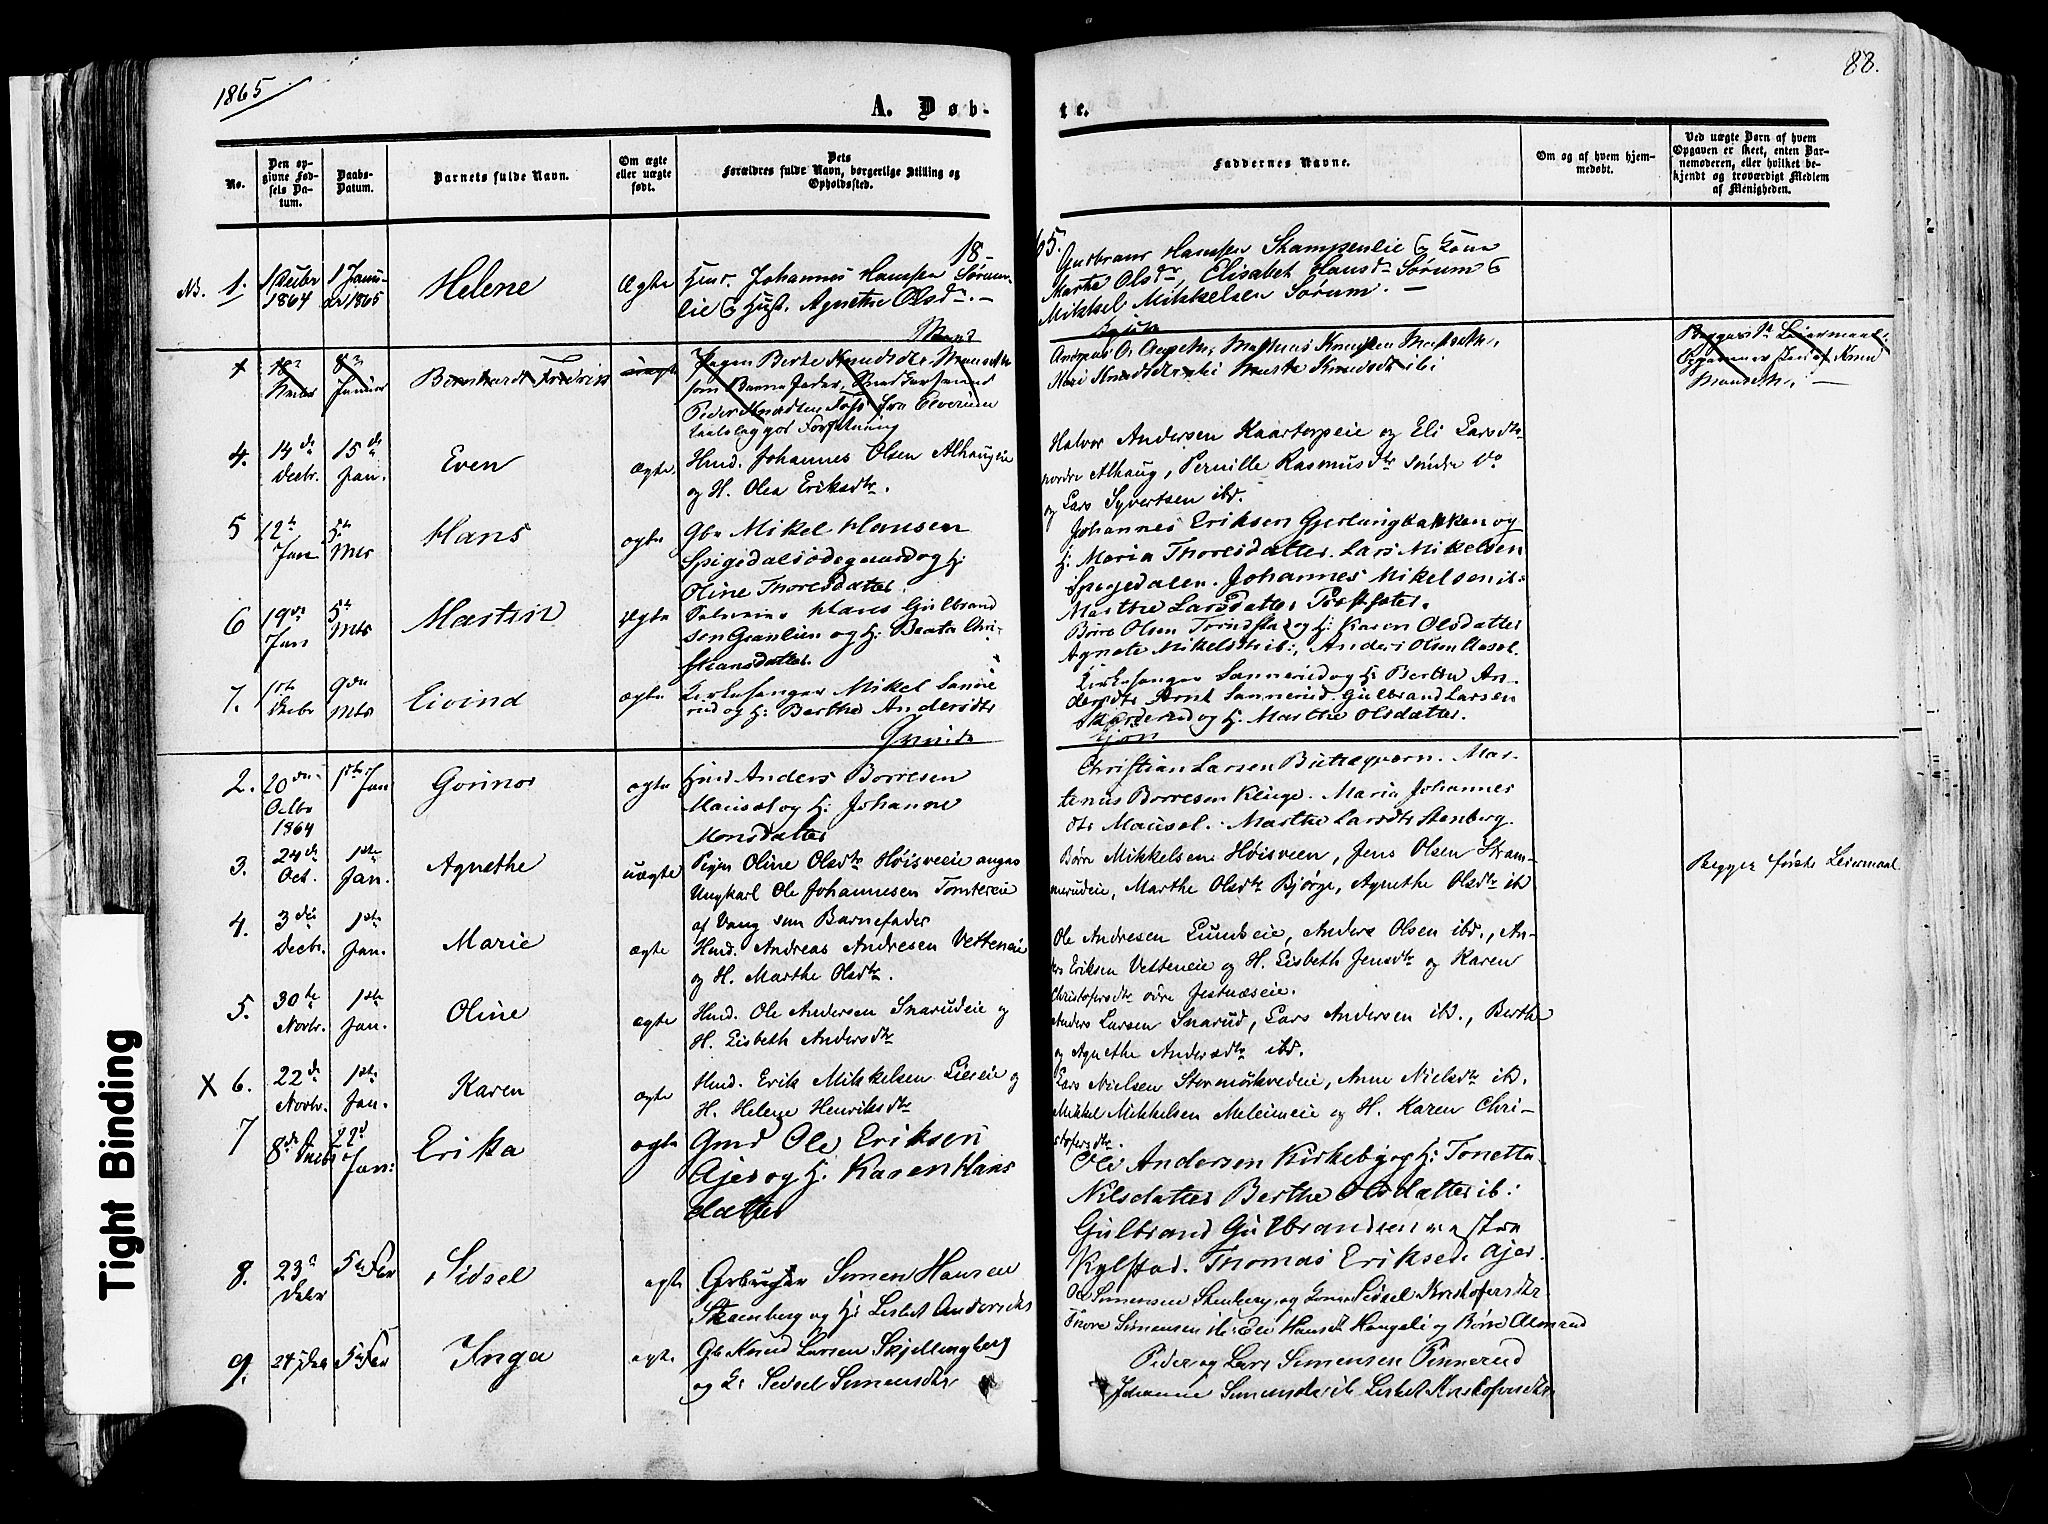 1865
88.
A. Døb-
te.
No.
Den op-
givne Fød-
sels Da-
tum.
Daabs-
Datum.
Barnets fulde Navn.
Om ægte
eller uægte
født.
Dets
Forældres fulde Navn, borgerlige Stilling og
Opholdssted.
Faddernes Navne.
Om og af hvem hjem-
medøbt.
Ved uægte Børn af hvem
Opgaven er skeet, enten Bar-
nemoderen, eller hvilket be-
kjendt og troværdigt Medlem
af Menigheden.
18-
65.
1.
1864
1 Janu-
ar 1865
Helene
Ægte
Johannes Hansen Sørum-
lie & Hust. Agnethe Olsd.
Gudbrand Hansen Stampenlie & Kone
Marte Olsdr Elisabet Hansdr Sørum &
Mikkel Mikkelsen Sørum.
Bernhardt Fredrik
uægte
Pigen Berte Knudsdtr
som Barnefader
Peder Knudsen fra Elverum
4.
14 de
Decbr.
15 de
Jan.
Even
ægte
Hmd. Johannes Olsen Alhaugeie
og H. Olea Eriksdtr.
Halvor Andersen Kaatorpeie og Eli Larsdtr
nordre Alhaug, Pernille Rasmusdtr søndre do
og Lars Syvertsen ibd.
5
12te
Jan
5te
Mts
Hans
ægte
Gbr Mikel Hansen
Spigedalsødegaard og H:
Oline Thoresdatter.
Johannes Eriksen Gjerlungbakken og
H: Maria Thoresdatter. Lars Mikelsen
Spigedalen. Johannes Mikelsen ib:
Marthe Larsdatter
6
19de
Jan
5te
Mts
Martin
Ægte
Hans Gulbrand
sen Granlien og H: Beata Chri-
stiansdatter.
Børre Olsen og H: Karen Olsdatter
Agnete Mikelsdtr ib:, Anders Olsen
7.
1ste
Decbr
9de
Mts
Eivind
ægte
Kirkesanger Mikel Sanne
rud og H: Berthe Andersdtr
Kirkesanger Sannerud og H: Berthe An-
dersdtr Arnt Sannerud. Gulbrand Larsen
og H: Marthe Olsdatter.
2.
20de
Octbr
1864
1ste Jan
Gunnor
ægte
Hmd Anders Borresen
Mausæt og H: Johanne
Monsdatter
Christian Larsen Mar-
tenus Borresen Kluge. Maria Johannes
dtr Marthe Larsdtr Stenberg.
3.
24de
Oct.
1ste
Jan.
Agnethe
uægte
Pigen Oline Olsdtr Høisveeie angav
Ungkarl Ole Johannesen Tomtereie
af Vang som Barnefader
Børre Mikkelsen Høisveen, Jens Olsen Stram-
merudeie, Marthe Olsdtr Bjørge, Agnethe Olsdtr ib
Begges første Leiermaal
4.
3die
Decbr.
1ste
Jan.
Marie
ægte
Hmd. Andreas Andresen Vetteneie
og H. Marthe Olsdtr.
Ole Andresen Lundseie, Anders Olsen ibd., An-
ders Eriksen Vetteneie og H. Lisbeth Jensdtr og Karen
Christofersdtr øvre Jestnæseie.
5.
30te
Novbr.
1ste
Jan.
Oline
ægte
Hmd. Ole Andersen Snarudeie og
H. Lisbeth Andersdtr
Anders Larsen Snarud, Lars Andersen ib., Berthe
og Agnethe Andersdtr ibd.
X 6.
22de
Novbr.
1ste
Jan.
Karen
ægte
Hmd. Erik Mikkelsen Liereie og
H. Helene Henriksdtr
Lars Nielsen Stormørkvedeie, Anne Nielsdtr ib.
Mikkel Mikkelsen Meleimeie og H. Karen Chri-
stofersdtr.
7
8de
22d
Jan:
Erika
ægte
Gmd Ole Eriksen
Ajer og H. Karen Hans
datter
Ole Andersen Kirkeby og H: Tonetta
Nilsdatter Berthe Olsdatter ib:
Gulbrand Gulbrandsen
Kylstad. Thomas Eriksen Ajer.
8.
23d
Debr
5te Feb
Sidsel
ægte
Grbruger Simen Hansen
Steenberg og H: Lisbet Andersdtr
Ole Simensen Stenberg og Kone Sidsel Kristofersdtr
Thore Simensen ib: Eli Hansdtr og Børre
9.
5te Feb
Inga
ægte
Gb Knud Larsen Skjellingberg
og H: Sidsel Simensdtr
Peder og Lars Simensen Pinnerud
Johanne Simensdtr ib Lisbet Kristofersdtr
Tight Binding